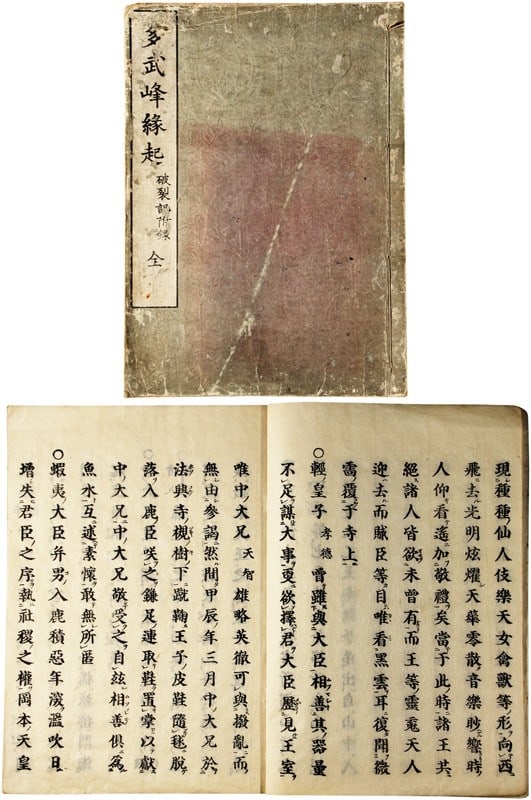 多武峰緣起
破裂記附錄
全
現種種仙人伎樂天女禽獸等形向西
飛去光明炫燿天華零散音樂眇響時
人仰看遙加敬禮矣當于此時諸王共
絕諸人皆欲未曾有而王等靈天人
迎去而賊臣等目唯看黑雲耳復聞微
雷覆于寺上
○輕皇子孝德曾雖與大臣相善其器量
不足謀大事更欲擇君大臣歷見王室
唯中大兄天智雄略英徹可與撥亂而
無由參謁然間甲辰年三月中大兄於
法興寺槻樹下蹴鞠王子皮鞋隨毬脫
落入鹿臣咲之鎌足連取鞋置掌以獻
中大兄中大兄敬受之自玆相善俱為
魚水互述素懷敢無所匿
○蝦夷大臣弁男入鹿積惡年深濫吹日
增失君臣之序執社稷之權岡本天皇